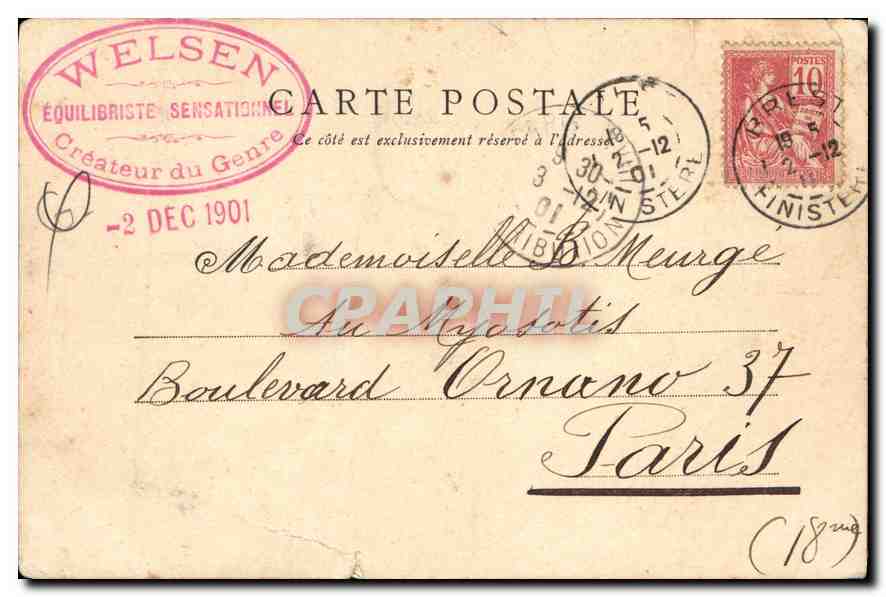 WELSEN
ÉQUILIBRISTE SENSATIONNEL
Créateur du Genre
-2 DEC 1901
CARTE POSTALE
Ce côté est exclusivement réservé à l'adresse
POSTES
10
BREST
19 5
2 -12
FINISTERE
5
2 -12
01
FINISTERE
30
3 -12
01
DISTRIBUTION
Mademoiselle B. Meurgé
Au Myosotis
Boulevard Ornano 37
Paris
(18me)
CPAPHIL